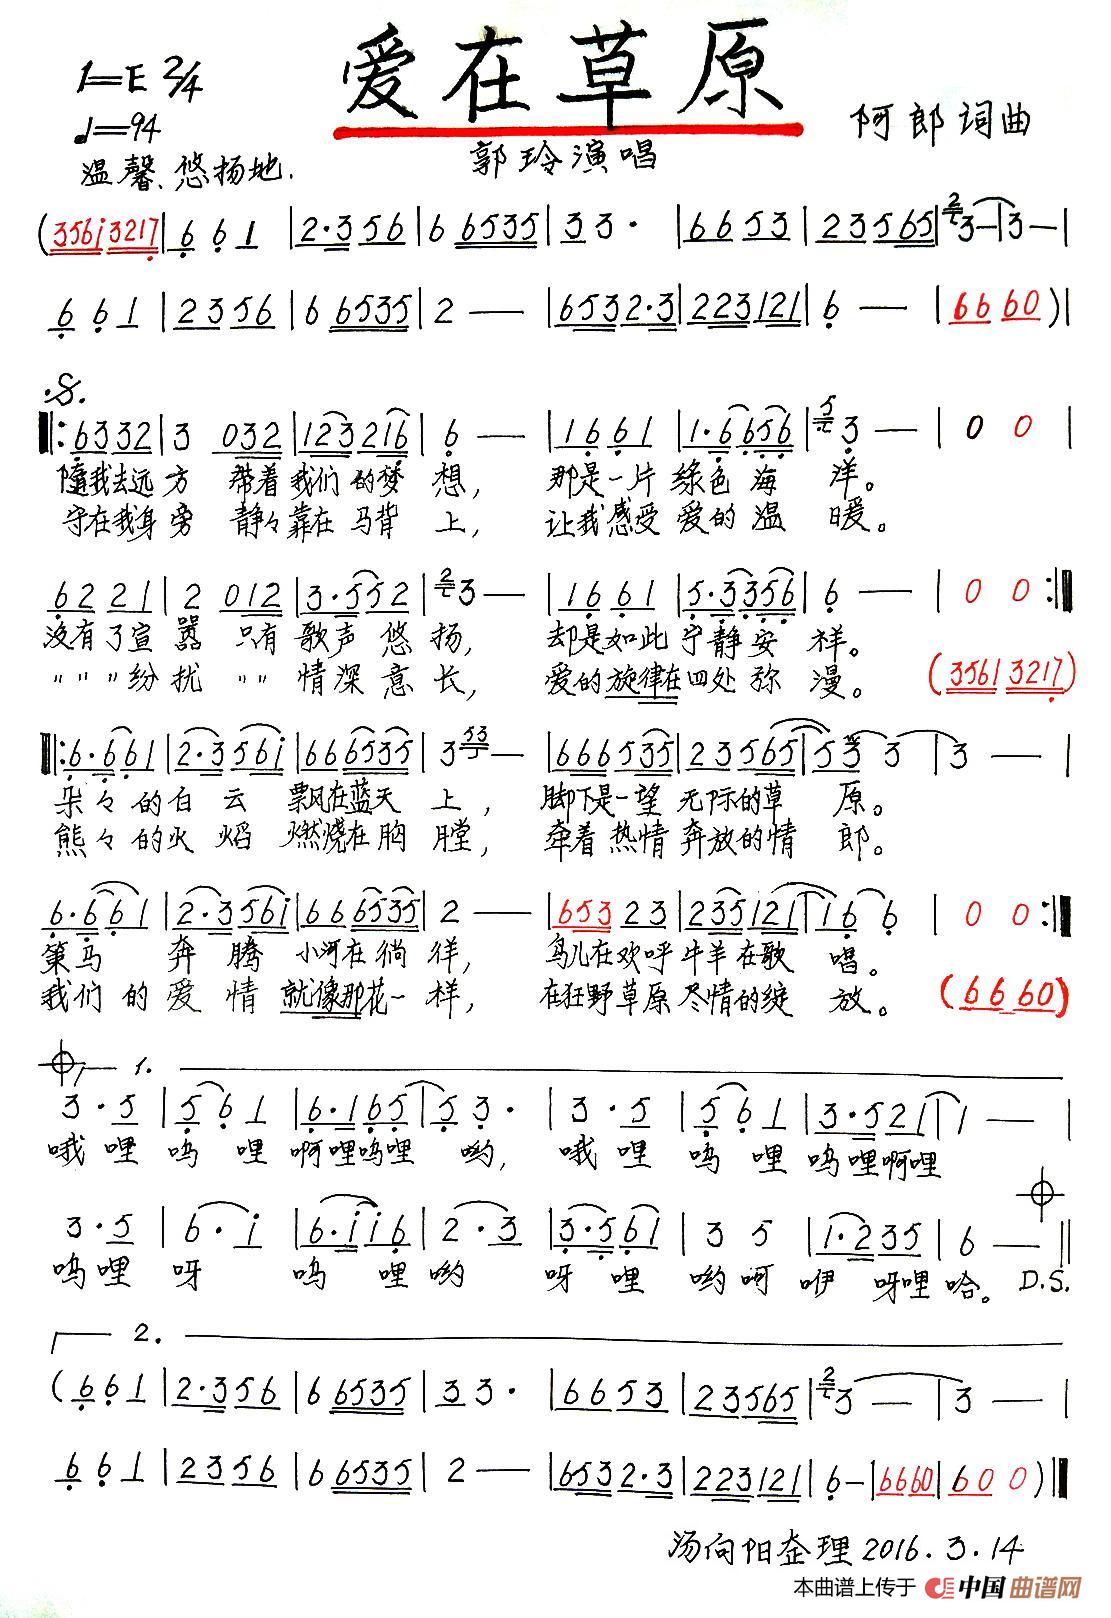 爱在草原
1=E 2/4
♩=94
阿郎词曲
温馨、悠扬地.
郭玲演唱
(3561 3217 | 6 6 1 | 2·3 5 6 | 6 6535 | 3 3· | 6 6 5 3 | 2 3 5 65 | 3 — | 3 — |
6 6 1 | 2 3 5 6 | 6 6535 | 2 — | 6532·3 | 223121 | 6 — | 6 6 6 0 ) |
|: 6332 | 3 032 | 123216 | 6 — | 1 6 6 1 | 1·6656 | 3 — | 0 0 |
随我去远方 带着我们的梦想, 那是一片绿色海洋。
守在我身旁 静々靠在马背上, 让我感受爱的温暖。
6221 | 2 012 | 3·552 | 3 — | 1 6 6 1 | 5·3356 | 6 — | 0 0 :|
没有了宣嚣 只有歌声悠扬, 却是如此宁静安祥。
〃〃〃纷扰 〃〃情深意长, 爱的旋律在四处弥漫。 (3561 3217)
|: 6·661 | 2·3561 | 666535 | 3 53 — | 666535 | 23565 | 5 3 3 | 3 — |
朵々的白云 飘在蓝天上, 脚下是一望无际的草原。
熊々的火焰 燃烧在胸膛, 牵着热情奔放的情郎。
6·661 | 2·3561 | 666535 | 2 — | 653 23 | 235121 | 1 6 6 | 0 0 :|
策马奔腾 小河在徜徉, 鸟儿在欢呼牛羊在歌唱。
我们的爱情 就像那花一样, 在狂野草原尽情的绽放。 (6 6 6 0)
1.
3·5 | 5 6 1 | 6·165 | 5 3· | 3·5 | 5 6 1 | 3·521 | 1 — |
哦哩呜哩啊哩呜哩哟, 哦哩呜哩呜哩啊哩
3·5 | 6·1 | 6·116 | 2·3 | 3·561 | 3 5 | 1·235 | 6 — ||
呜哩呀 呜哩哟 呀哩哟呵咿呀哩哈。 D.S.
2.
( 6 6 1 | 2·3 5 6 | 6 6535 | 3 3· | 6 6 5 3 | 2 3 5 65 | 3 — | 3 — |
6 6 1 | 2 3 5 6 | 6 6535 | 2 — | 6532·3 | 223121 | 6 — | 6660 | 6 0 0 ) |
汤向阳整理2016.3.14
本曲谱上传于 中国曲谱网